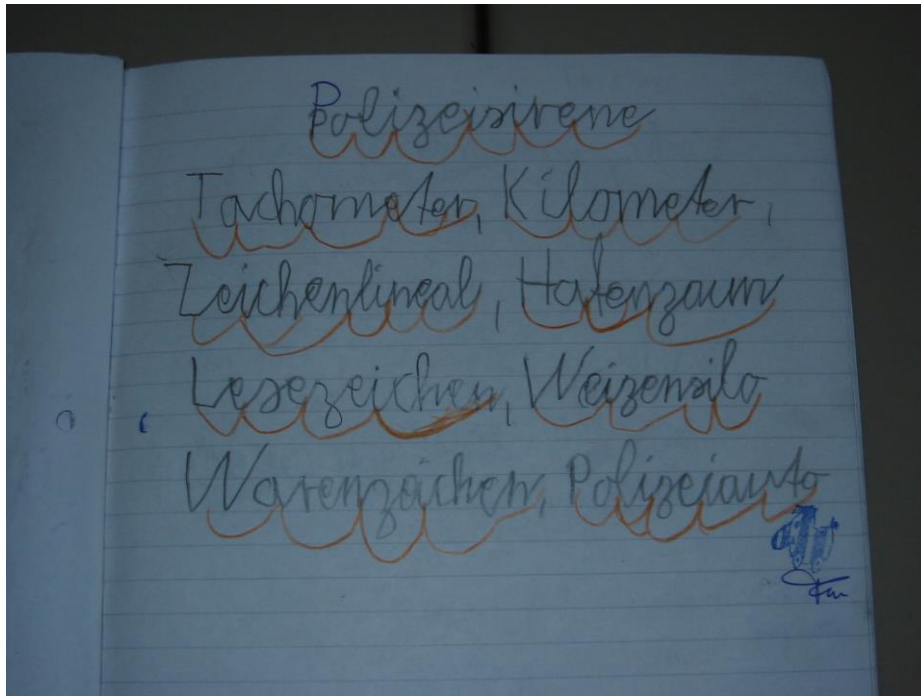 Polizeisirene
Tachometer, Kilometer,
Zeichenlineal, Hafenzaun
Lesezeichen, Weizensilo
Warenzeichen, Polizeiauto